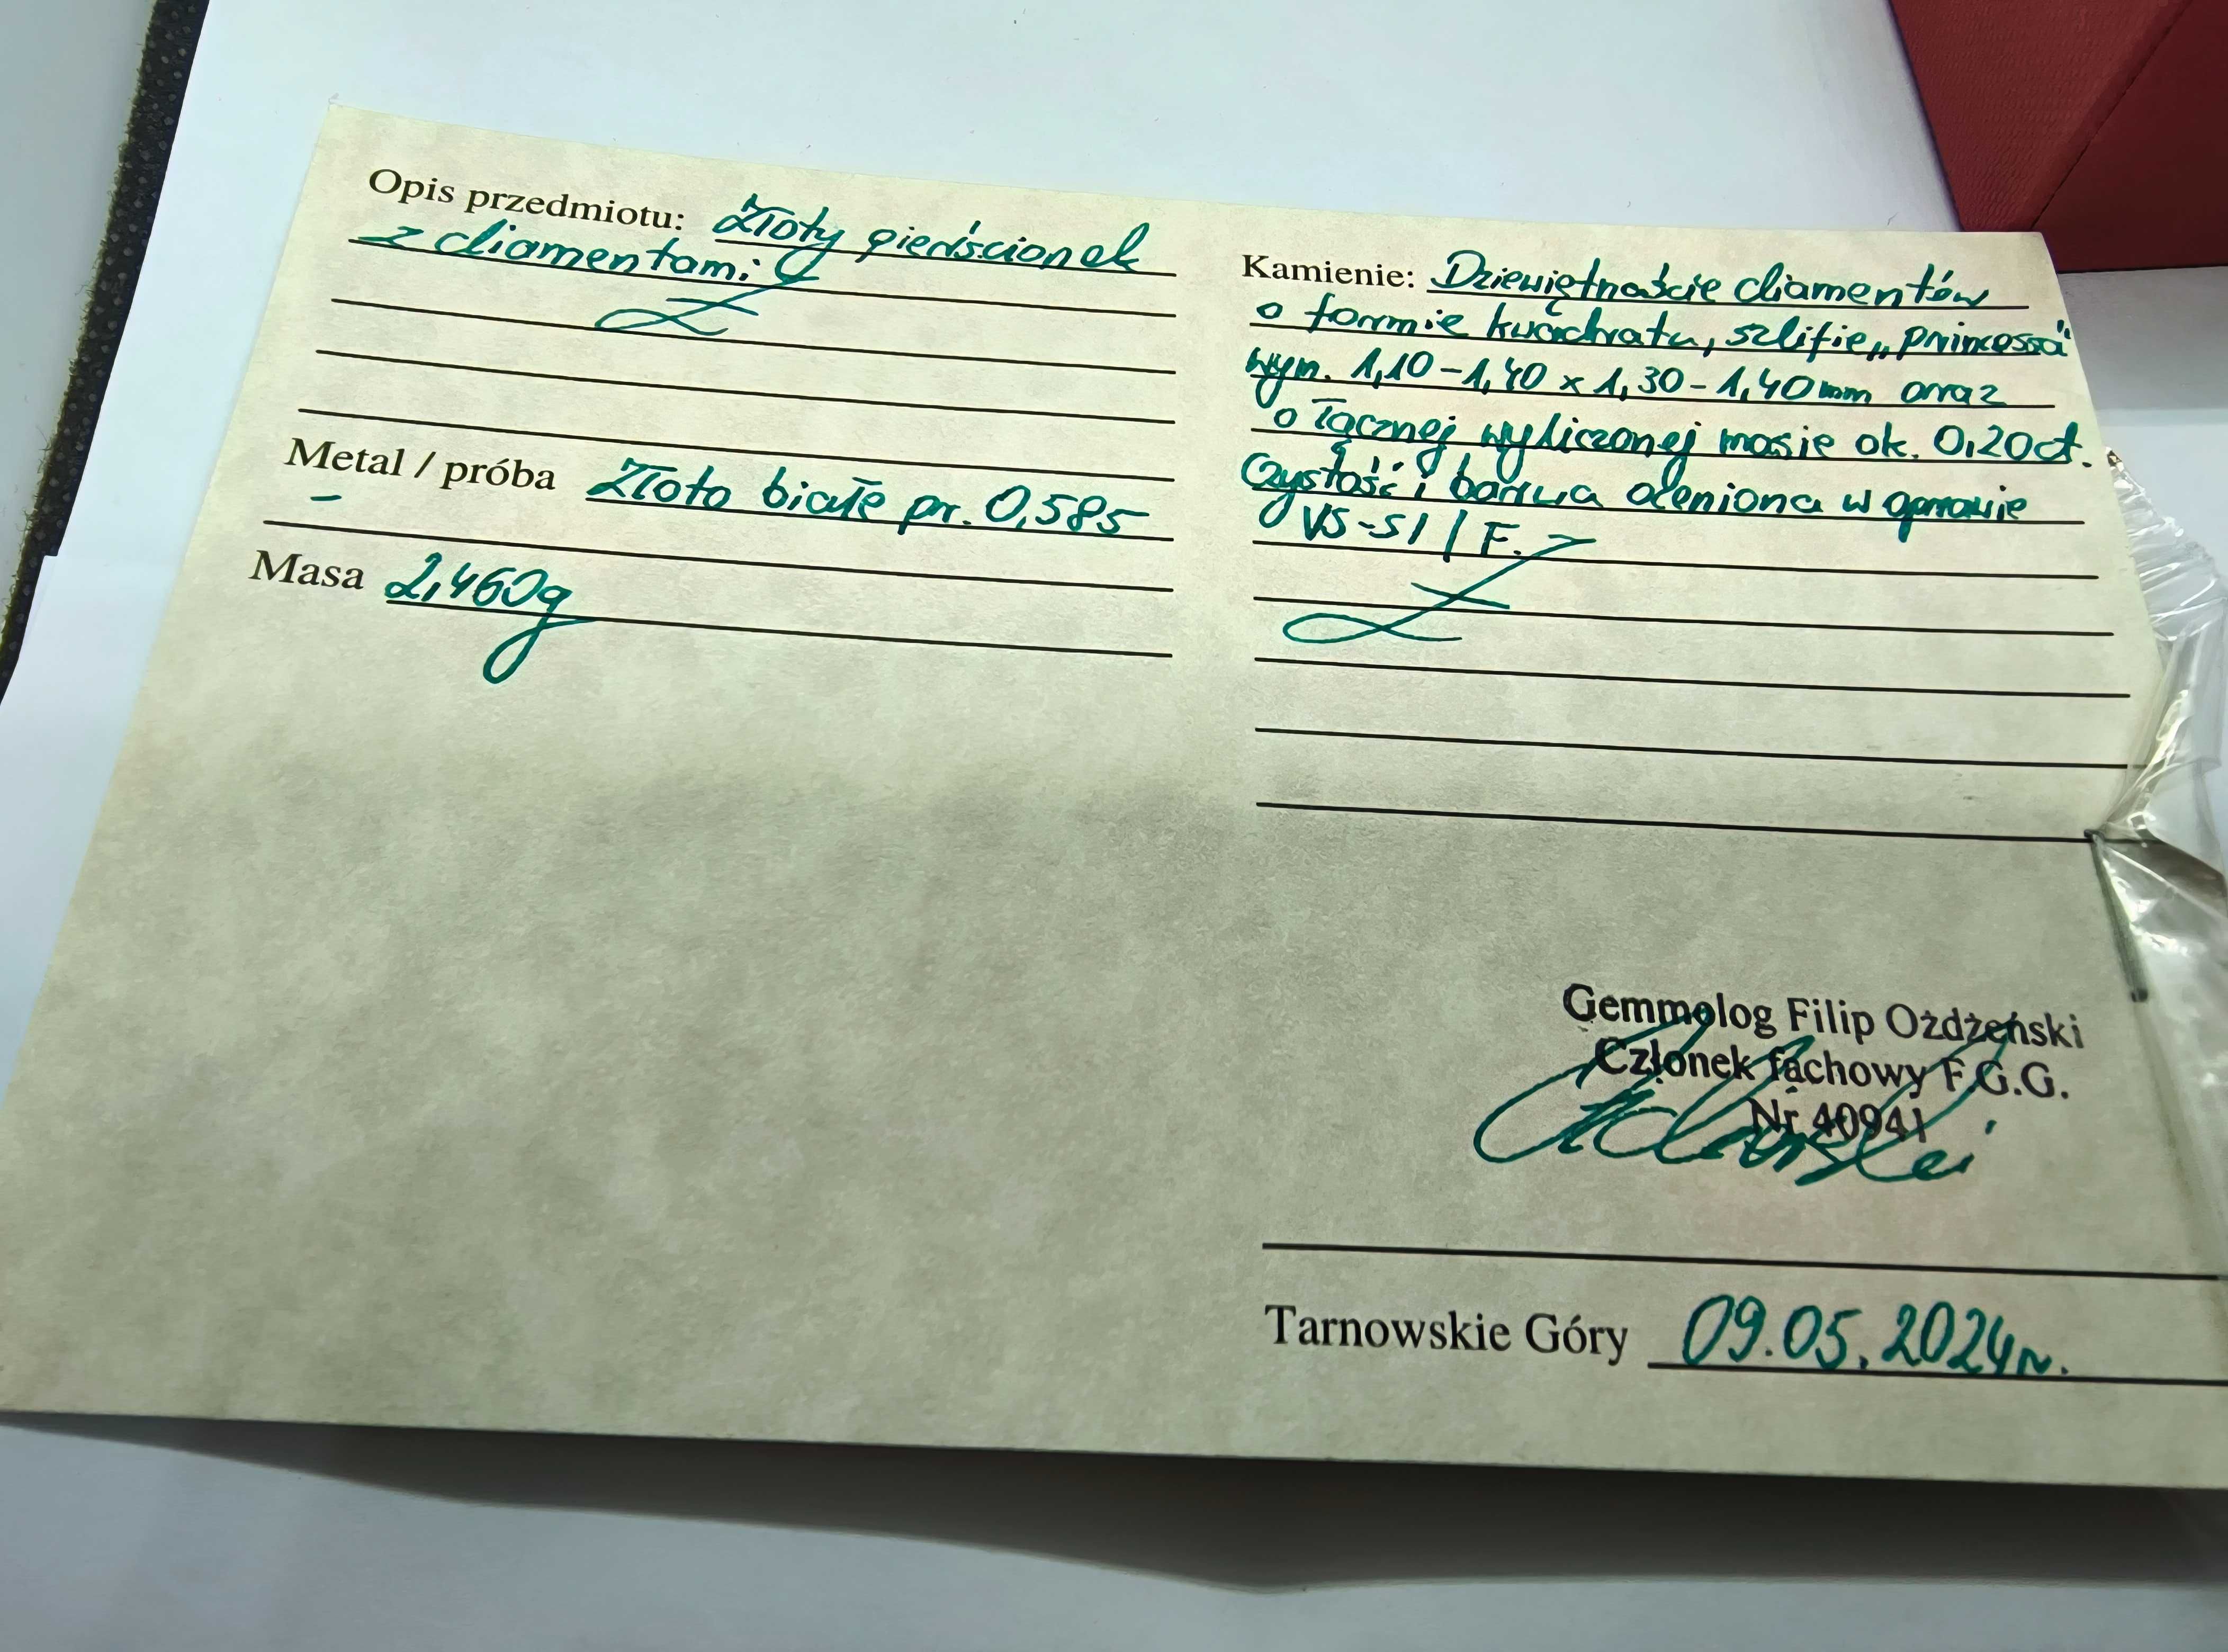 Opis przedmiotu: Złoty pierścionek
z diamentami
Metal / próba Złoto białe pr. 0,585
Masa 2,460g
Kamienie: Dziewiętnaście diamentów
o formie kwadratu, szlifie „princessa"
wym. 1,10-1,40 x 1,30-1,40mm oraz
o łącznej wyliczonej masie ok. 0,20ct.
Czystość i barwa oceniona w oprawie
VS-SI / F.
Gemmolog Filip Ożdżeński
Członek fachowy F.G.G.
Nr 40941
Tarnowskie Góry 09.05.2024r.